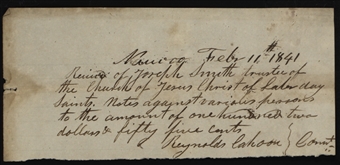 Nauvoo Feby 11th 1841
Recieved of Joseph Smith trustee of
the Church of Jesus Christ of Latter day
Saints. Notes against various persons
to the amount of one hundred two
dollars & fifty five cents
Reynolds Cahoon } Comt.